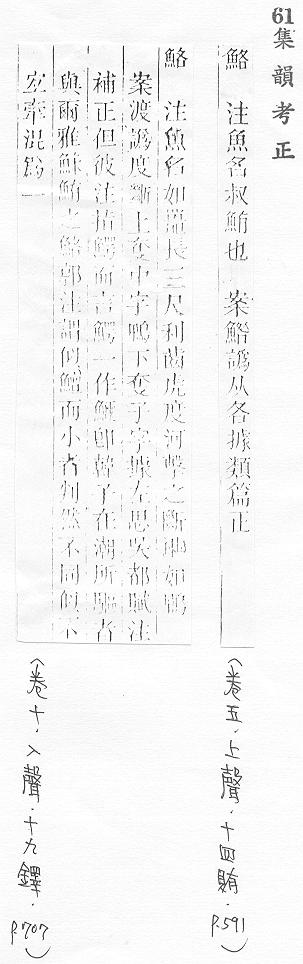 61集韻考正
鮥 注魚名叔鮪也 案鮥譌从各據類篇正
(卷五.上聲.十四賄.P.591)
鮥 注魚名如鼉長三尺利齒虎度河擊之斷地如鴨
案渡譌度斷上奪中字鴨下奪子字據左思吳都賦注
補正但彼注指鰐而言鰐一作鱷卽韓子在潮所驅者
與爾雅鮛鮪之鮥郭注謂似鱣而小者判然不同似不
宜牽混爲一
(卷十.入聲.十九鐸.P.707)